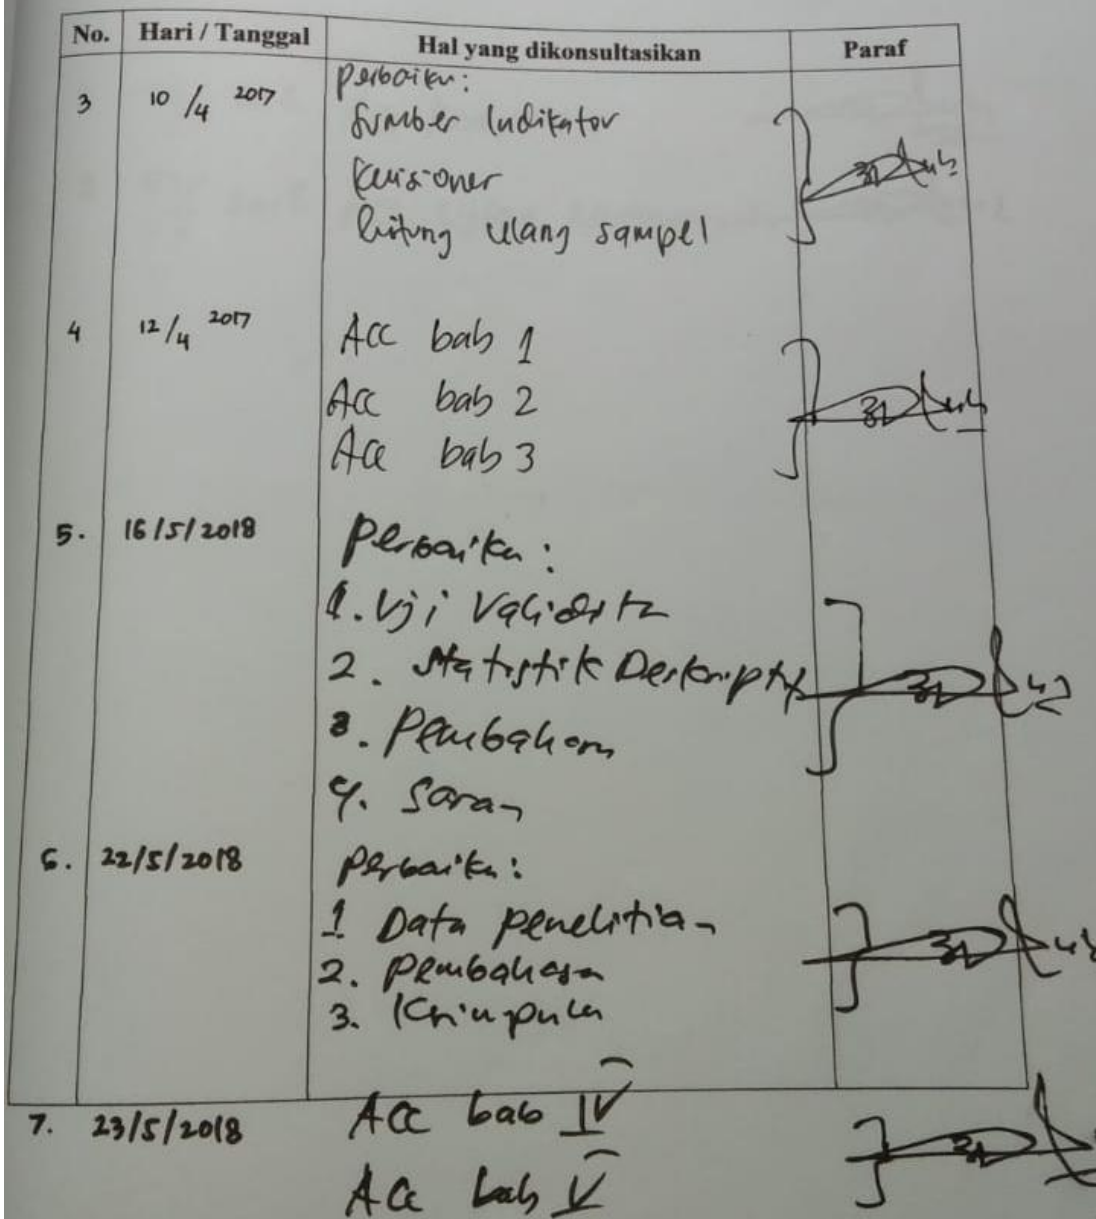 No. Hari / Tanggal Hal yang dikonsultasikan Paraf
3 10/4 2017 Perbaiku:
Sumber Indikator
Kuisioner
hitung ulang sampel
4 12/4 2017 Acc bab 1
Acc bab 2
Acc bab 3
5. 16/5/2018 Perbaiku:
1. Uji Validitas
2. Statistik Deskriptif
3. Pembahasan
4. Saran
6. 22/5/2018 Perbaiku:
1 Data penelitian
2. Pembahasan
3. Kesimpulan
7. 23/5/2018 Acc bab IV
Acc bab V